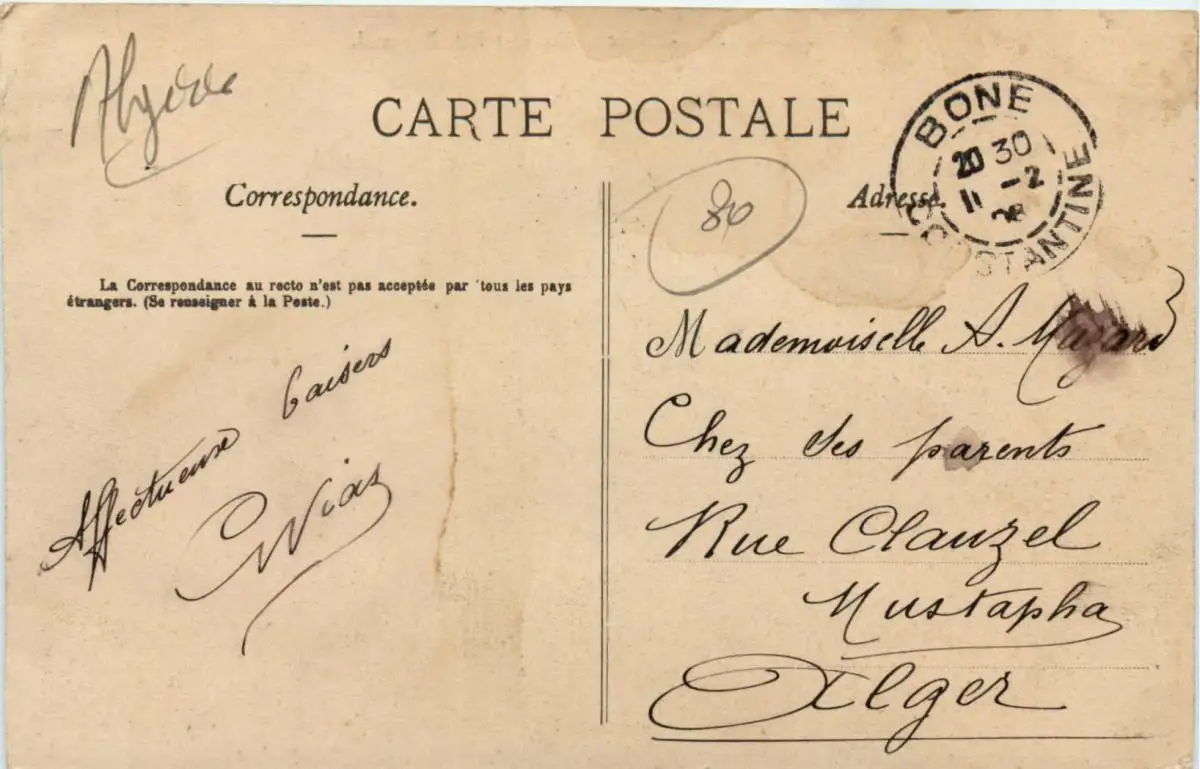 Algérie
CARTE POSTALE
BONE
20 30
11 -2
CONSTANTINE
Correspondance.
80
Adresse.
La Correspondance au recto n'est pas acceptée par tous les pays
étrangers. (Se renseigner à la Poste.)
Affectueux baisers
Mademoiselle A. Mazard
Chez ses parents
Rue Clauzel
Mustapha
Alger